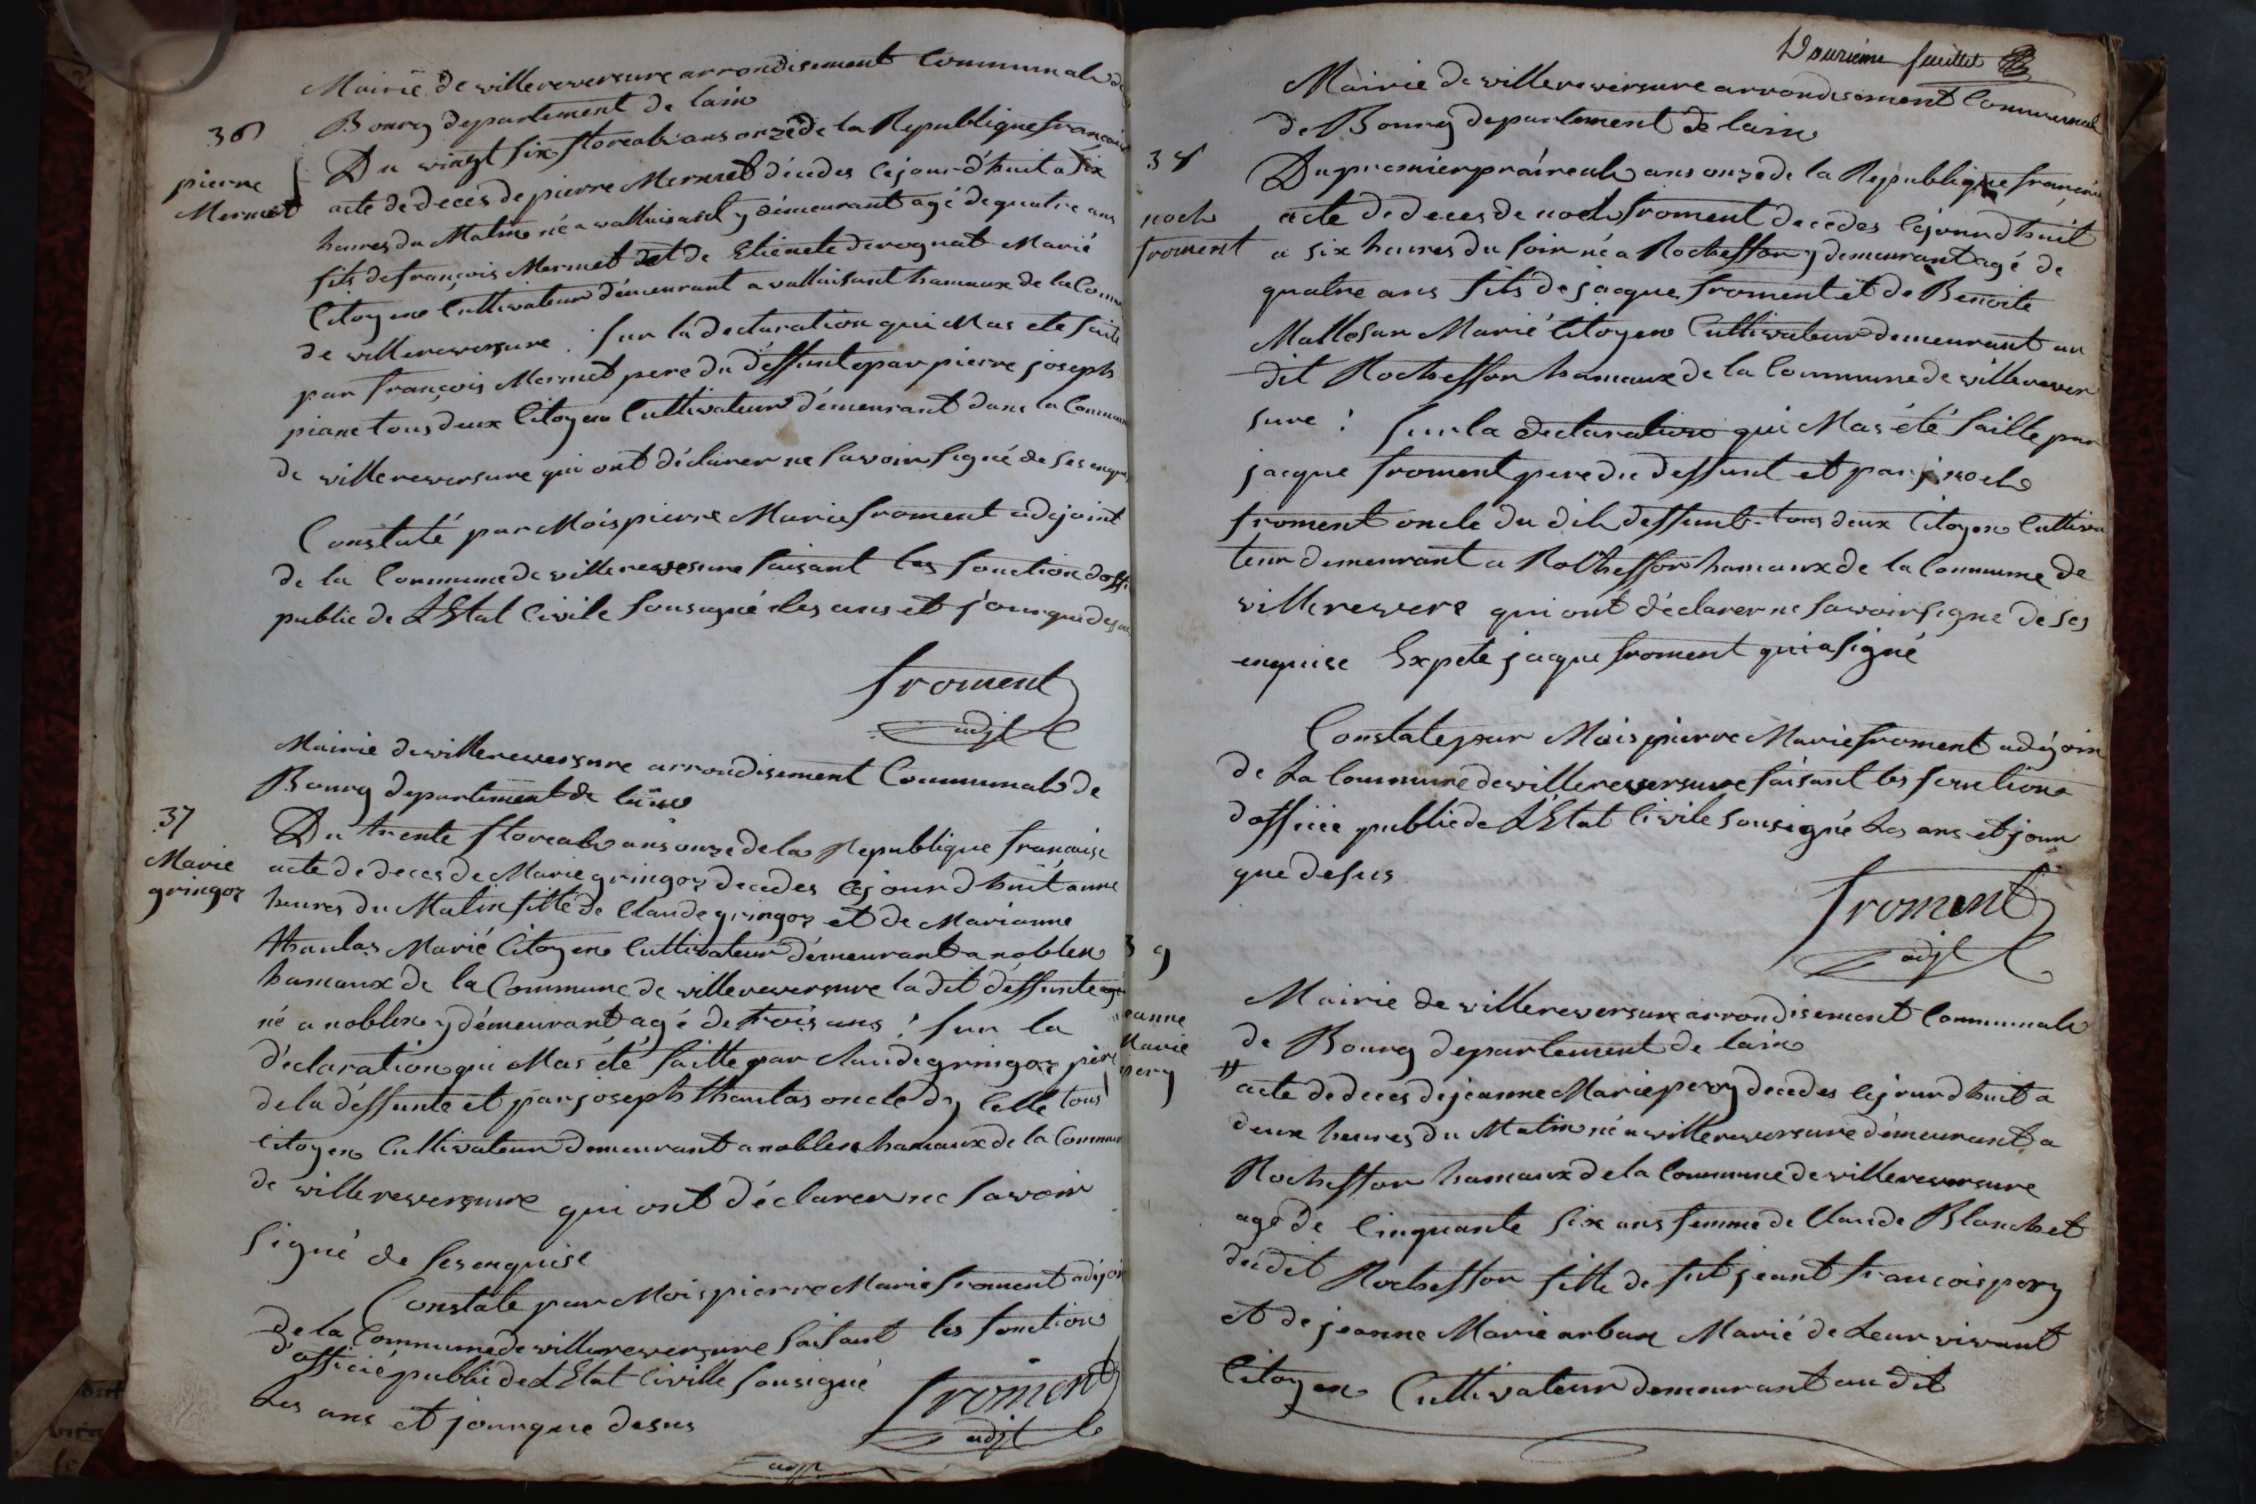 Mairie de villereversure arrondisement Communale de
Bourg departement de lain
36
pierre
Mermet
Du vingt six floreale ans onze de la Republique français
acte de deces de pierre Mermet décedes cejourd'huit a six
heures du Matin né a valluisant y démeurant agé de quatre ans
fils de françois Mermet et de Etienete derognat Marié
Citoyen Cultivateur démeurant a valluisant hamaux de la Comm
de villereversure . sur la declaration qui Mas ete faite
par françois Mermet pere du déffunt epar pierre joseph
piane tous deux Citoyen Cultivateur démeurant dans la Commun
de villereversure qui ont déclarer ne savoir signé de ses enqui
Constaté par Mois pierre Marie froment adejoint
de la Commune de villereversure faisant les fonction doffi
public de L'Etat Civile sousigné les ans et jour que desus
froment
adjt
Mairie de villereversure arrondisement Communale de
Bourg departement de lain
37
Marie
gringoz
Du trente floreale ans onze de la Republique française
acte de deces de Marie gringoz decedes cejourd huit a une
heures du Matin fille de Claude gringoz et de Marianne
thaulas Marié Citoyen Cultivateur démeurant a noblen
hamaux de la Commune de villereversure la dit déffunte
né a noblen y démeurant agé de trois ans : sur la
déclaration qui Mas été faitte par claude gringoz père
de la déffunte et par joseph thaulas oncle dy celle tous
citoyen Cultivateur demeurant a noblen hamaux de la Commun
de villereversure qui ont déclarer ne savoir
signé de ses enquise
Constate par Mois pierre Marie froment adejoin
de la Commune de villereversure faisant les fonction
d'officié public de L'Etat Civille sousigné
Les ans et jour que desus
froment
adjt
Douzieme feuillet
Mairie de villereversure arrondisement Communal
de Bourg departement de lain
38
noel
froment
Du premier prairéal ans onze de la Republique français
acte de deces de noel froment decedes cejourd huit
a six heures du soir né a Rocheffor y demeurant agé de
quatre ans fils de jacque froment et de Benoite
Mallesan Marié Citoyen Cultivateur demeurant au
dit Rocheffor hamaux de la Commune de villerever
sure : sur la declaration qui Mas été faitte par
jacque froment pere du deffunt et par noel
froment oncle du dit deffunt tous deux Citoyen Cultiva
teur demeurant a Rocheffor hamaux de la Commune de
villerevere qui ont déclarer ne savoir signé de ses
enquise Expete jacque froment qui a signé
Constate par Mois pierre Marie froment adejoin
de La Commune de villereversure faisant les fonctions
dofficie public de L'Etat Civile sousigné Les ans et jour
que desus
froment
adjt
39
jeanne
Marie
pery
Mairie de villereversure arrondisement Communale
de Bourg departement de lain
acte de deces de jeanne Marie pery decedes cejourd huit a
deux heures du Matin né a villereversure démeurant a
Rocheffor hamaux de la Commune de villereversure
agé de Cinquante six ans femme de Claude Blanchet
du dit Rocheffor fille de fut jeant francois pery
et de jeanne Marie arban Marié de Leur vivant
Citoyen Cultivateur demeurant au dit